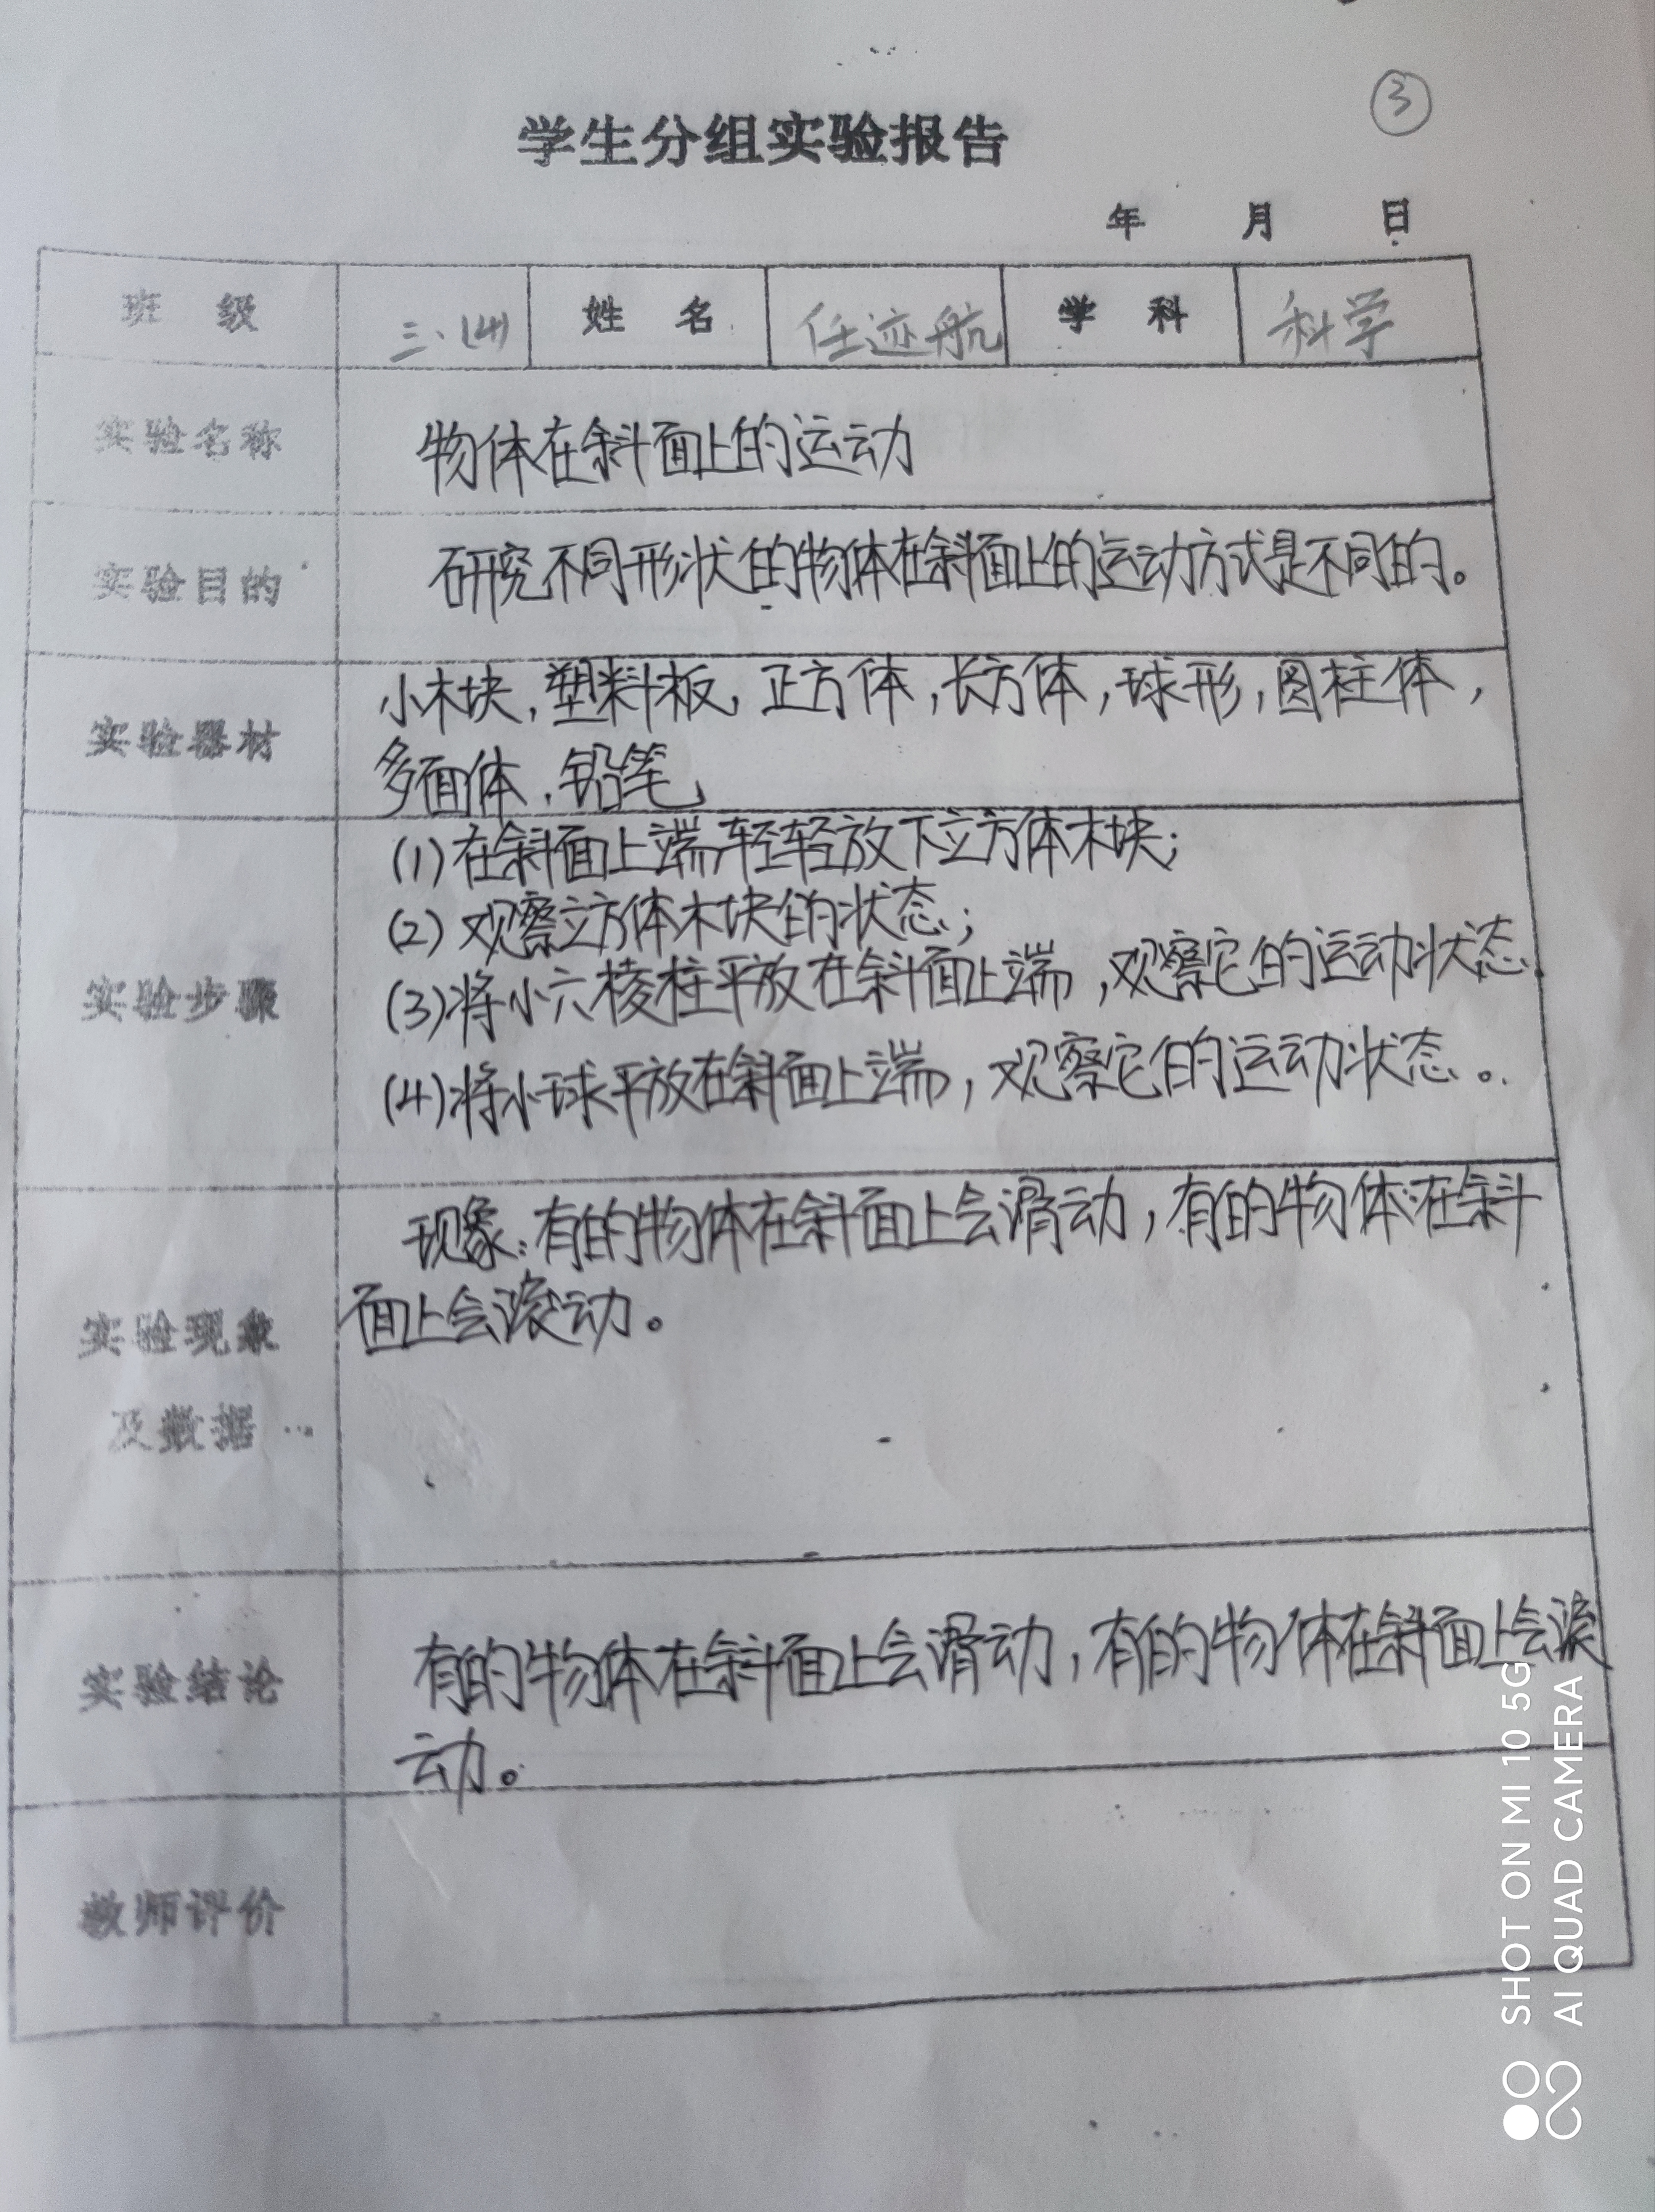 ③
学生分组实验报告
年 月 日
班 级 三.(4) 姓 名 任迹航 学 科 科学
实验名称 物体在斜面上的运动
实验目的 研究不同形状的物体在斜面上的运动方式是不同的。
实验器材 小木块,塑料板,正方体,长方体,球形,圆柱体,
多面体,铅笔
实验步骤
(1)在斜面上端轻轻放下立方体木块;
(2)观察立方体木块的状态;
(3)将小六棱柱平放在斜面上端,观察它的运动状态.
(4)将小球平放在斜面上端,观察它的运动状态。
实验现象
及数据
现象:有的物体在斜面上会滑动,有的物体在斜
面上会滚动。
实验结论
有的物体在斜面上会滑动,有的物体在斜面上会滚
动。
教师评价
SHOT ON MI 10 5G
AI QUAD CAMERA